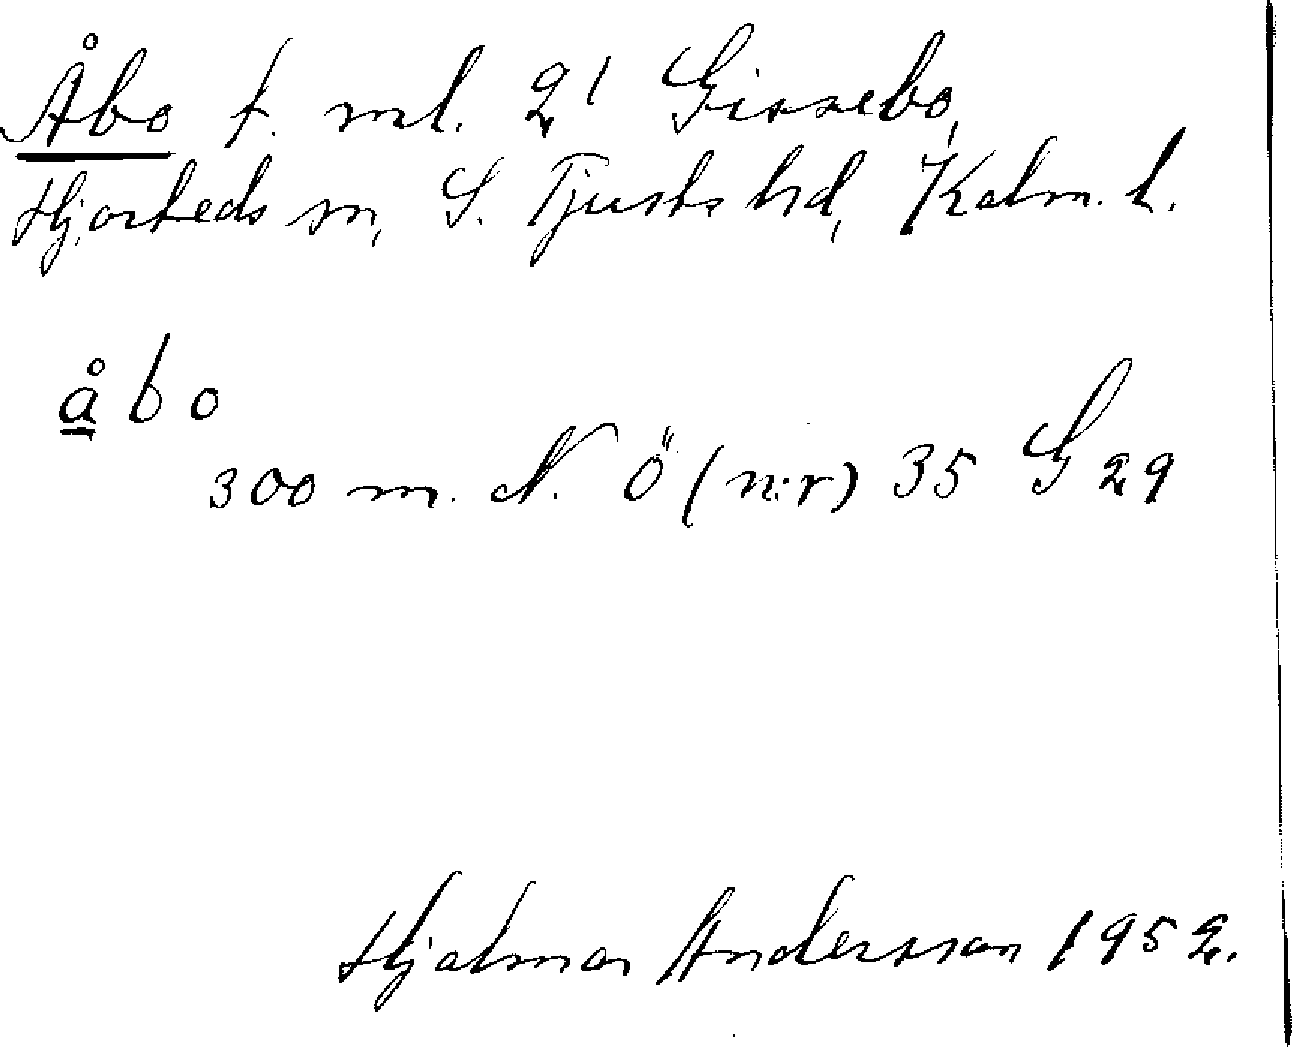 Åbo t. ml. 2¹ Gissebo,
Hjorteds sn, S. Tjusts hd, Kalm. l.
åbo
300 m. N. Ö (n:r) 35 G 29
Hjalmar Andersson 1952.